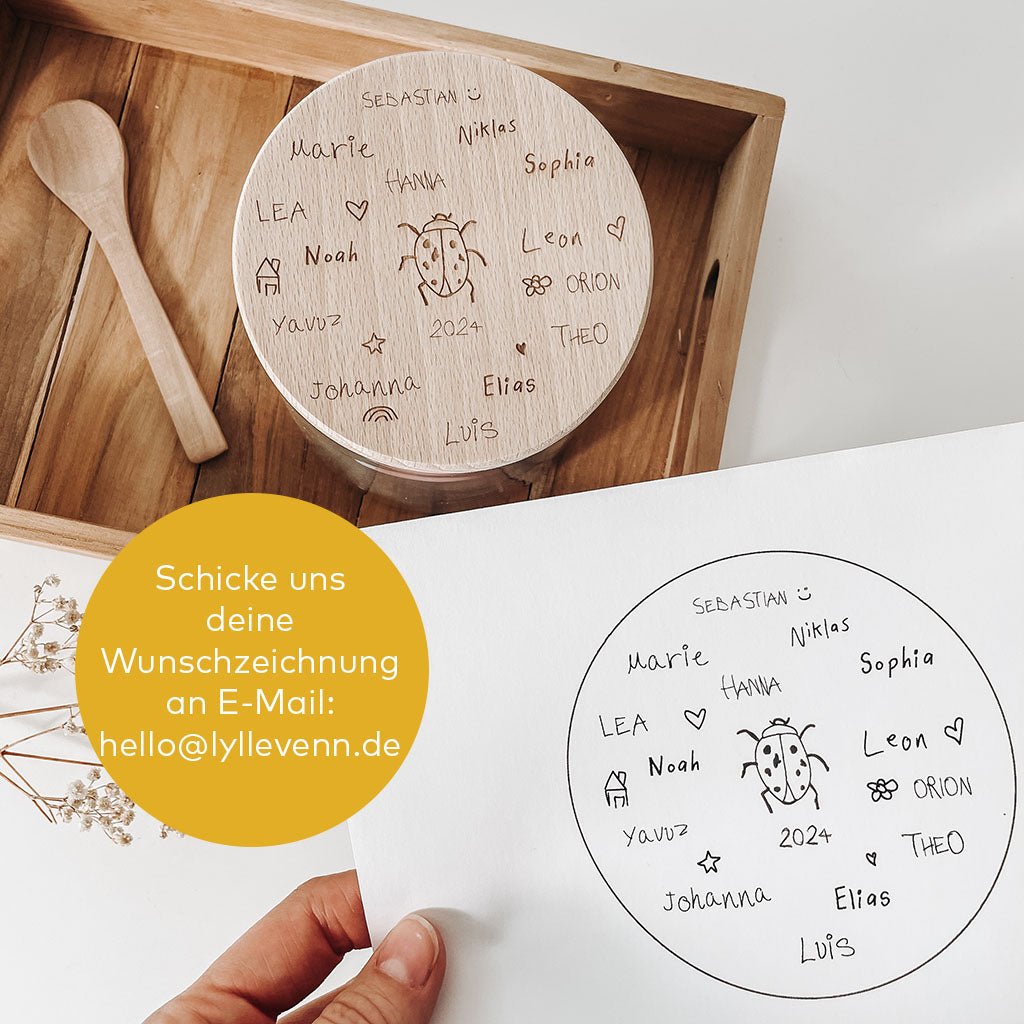 SEBASTIAN
Niklas
Marie
Sophia
HANNA
LEA
Leon
Noah
ORION
Yavuz
2024
THEO
Johanna
Elias
LUIS
Schicke uns
deine
Wunschzeichnung
an E-Mail:
hello@lyllevenn.de
SEBASTIAN
Niklas
Marie
Sophia
HANNA
LEA
Leon
Noah
ORION
Yavuz
2024
THEO
Johanna
Elias
LUIS